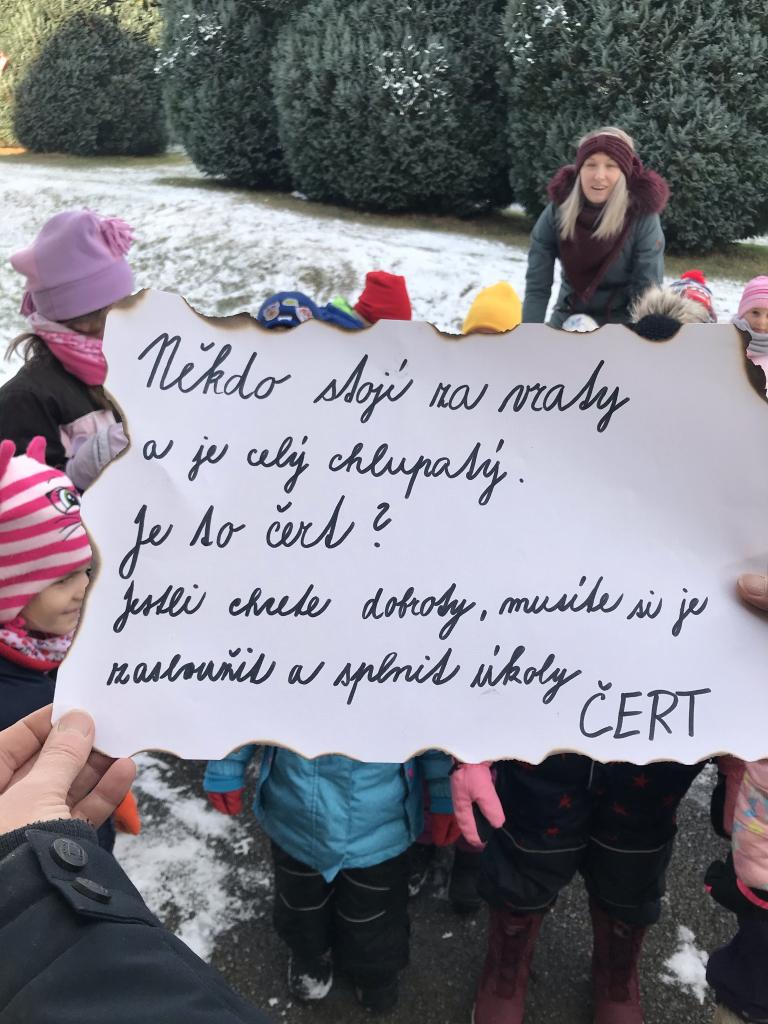 Někdo stojí za vraty
a je celý chlupatý.
Je to čert?
Jestli chcete dobroty, musíte si je
zasloužit a splnit úkoly
ČERT